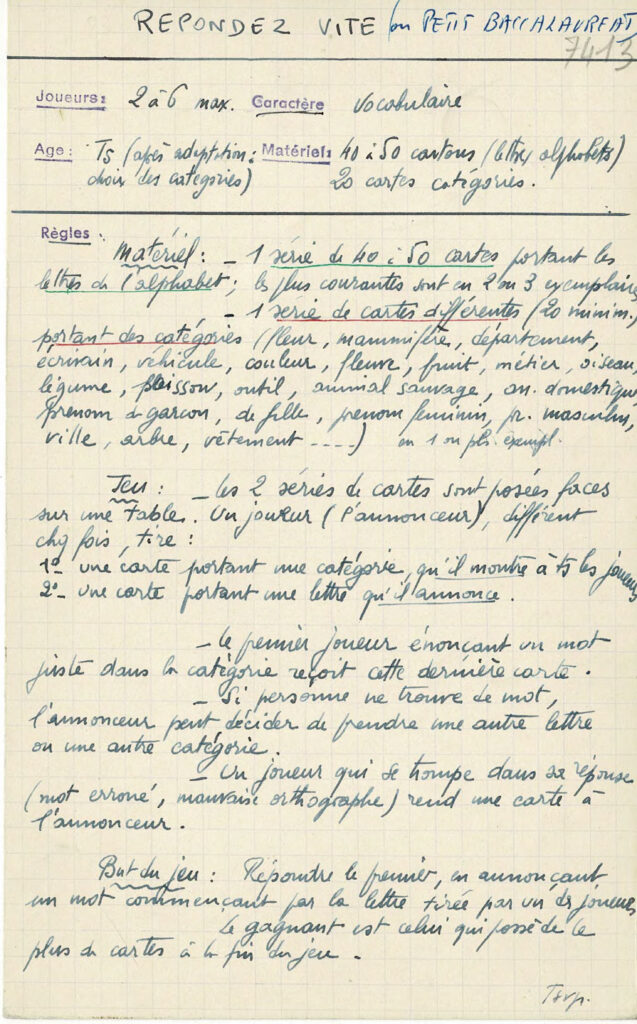 REPONDEZ VITE (ou PETIT BACCALAUREAT)
7413
Joueurs: 2 à 6 max. Caractère vocabulaire
Age: Ts (après adaptation: Matériel: 40 à 50 cartons (lettres alphabets)
choix des catégories) 20 cartes catégories.
Règles:
Matériel: - 1 série de 40 à 50 cartes portant les
lettres de l'alphabet; les plus courantes sont en 2 ou 3 exemplaires
- 1 série de cartes différentes (20 minim.,
portant des catégories (fleur, mammifère, département,
écrivain, véhicule, couleur, fleuve, fruit, métier, oiseau,
légume, poisson, outil, animal sauvage, an. domestique
prénom de garçon, de fille, prénom féminin, pr. masculin,
ville, arbre, vêtement ----) en 1 ou pls. exempl.
Jeu: - les 2 séries de cartes sont posées faces
sur une table. Un joueur (l'annonceur), différent
chq fois, tire:
1°- une carte portant une catégorie, qu'il montre à ts les joueurs
2°- une carte portant une lettre qu'il annonce.
- Le premier joueur énonçant un mot
juste dans la catégorie reçoit cette dernière carte.
- Si personne ne trouve de mot,
l'annonceur peut décider de prendre une autre lettre
ou une autre catégorie.
- Un joueur qui se trompe dans sa réponse
(mot erroné, mauvaise orthographe) rend une carte à
l'annonceur.
But du jeu: Répondre le premier, en annonçant
un mot commençant par la lettre tirée par un des joueurs
Le gagnant est celui qui possède le
plus de cartes à la fin du jeu.
Tsvp.